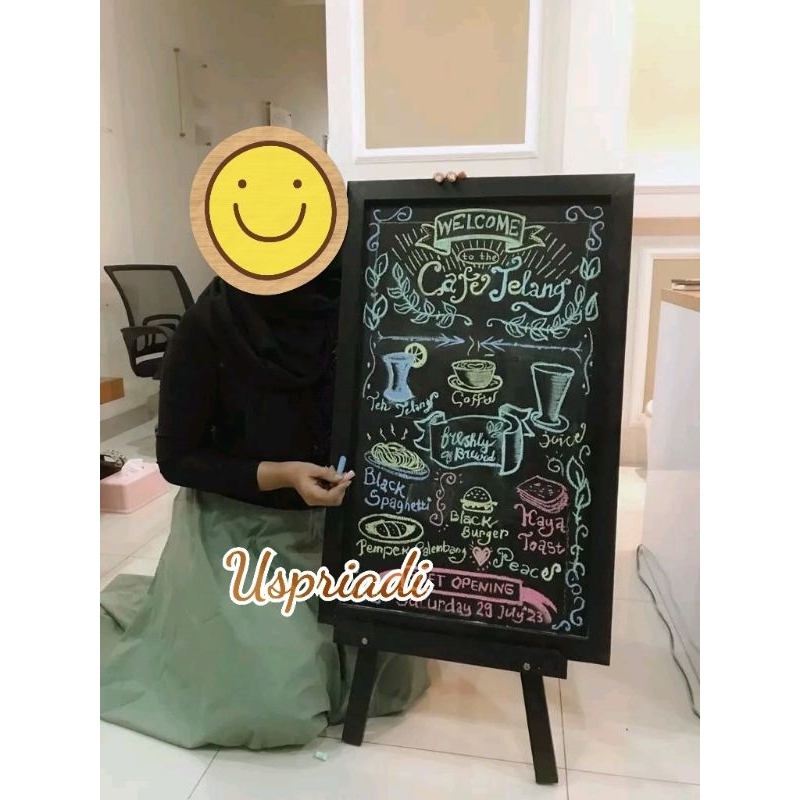 WELCOME
to the
Cafe Telang
Teh Telang
Coffee
Juice
freshly
Brewed
Black
Spaghetti
Black
Burger
Kaya
Toast
Pempek Palembang
Peaces
Uspriadi
OPENING
Saturday 29 July '23